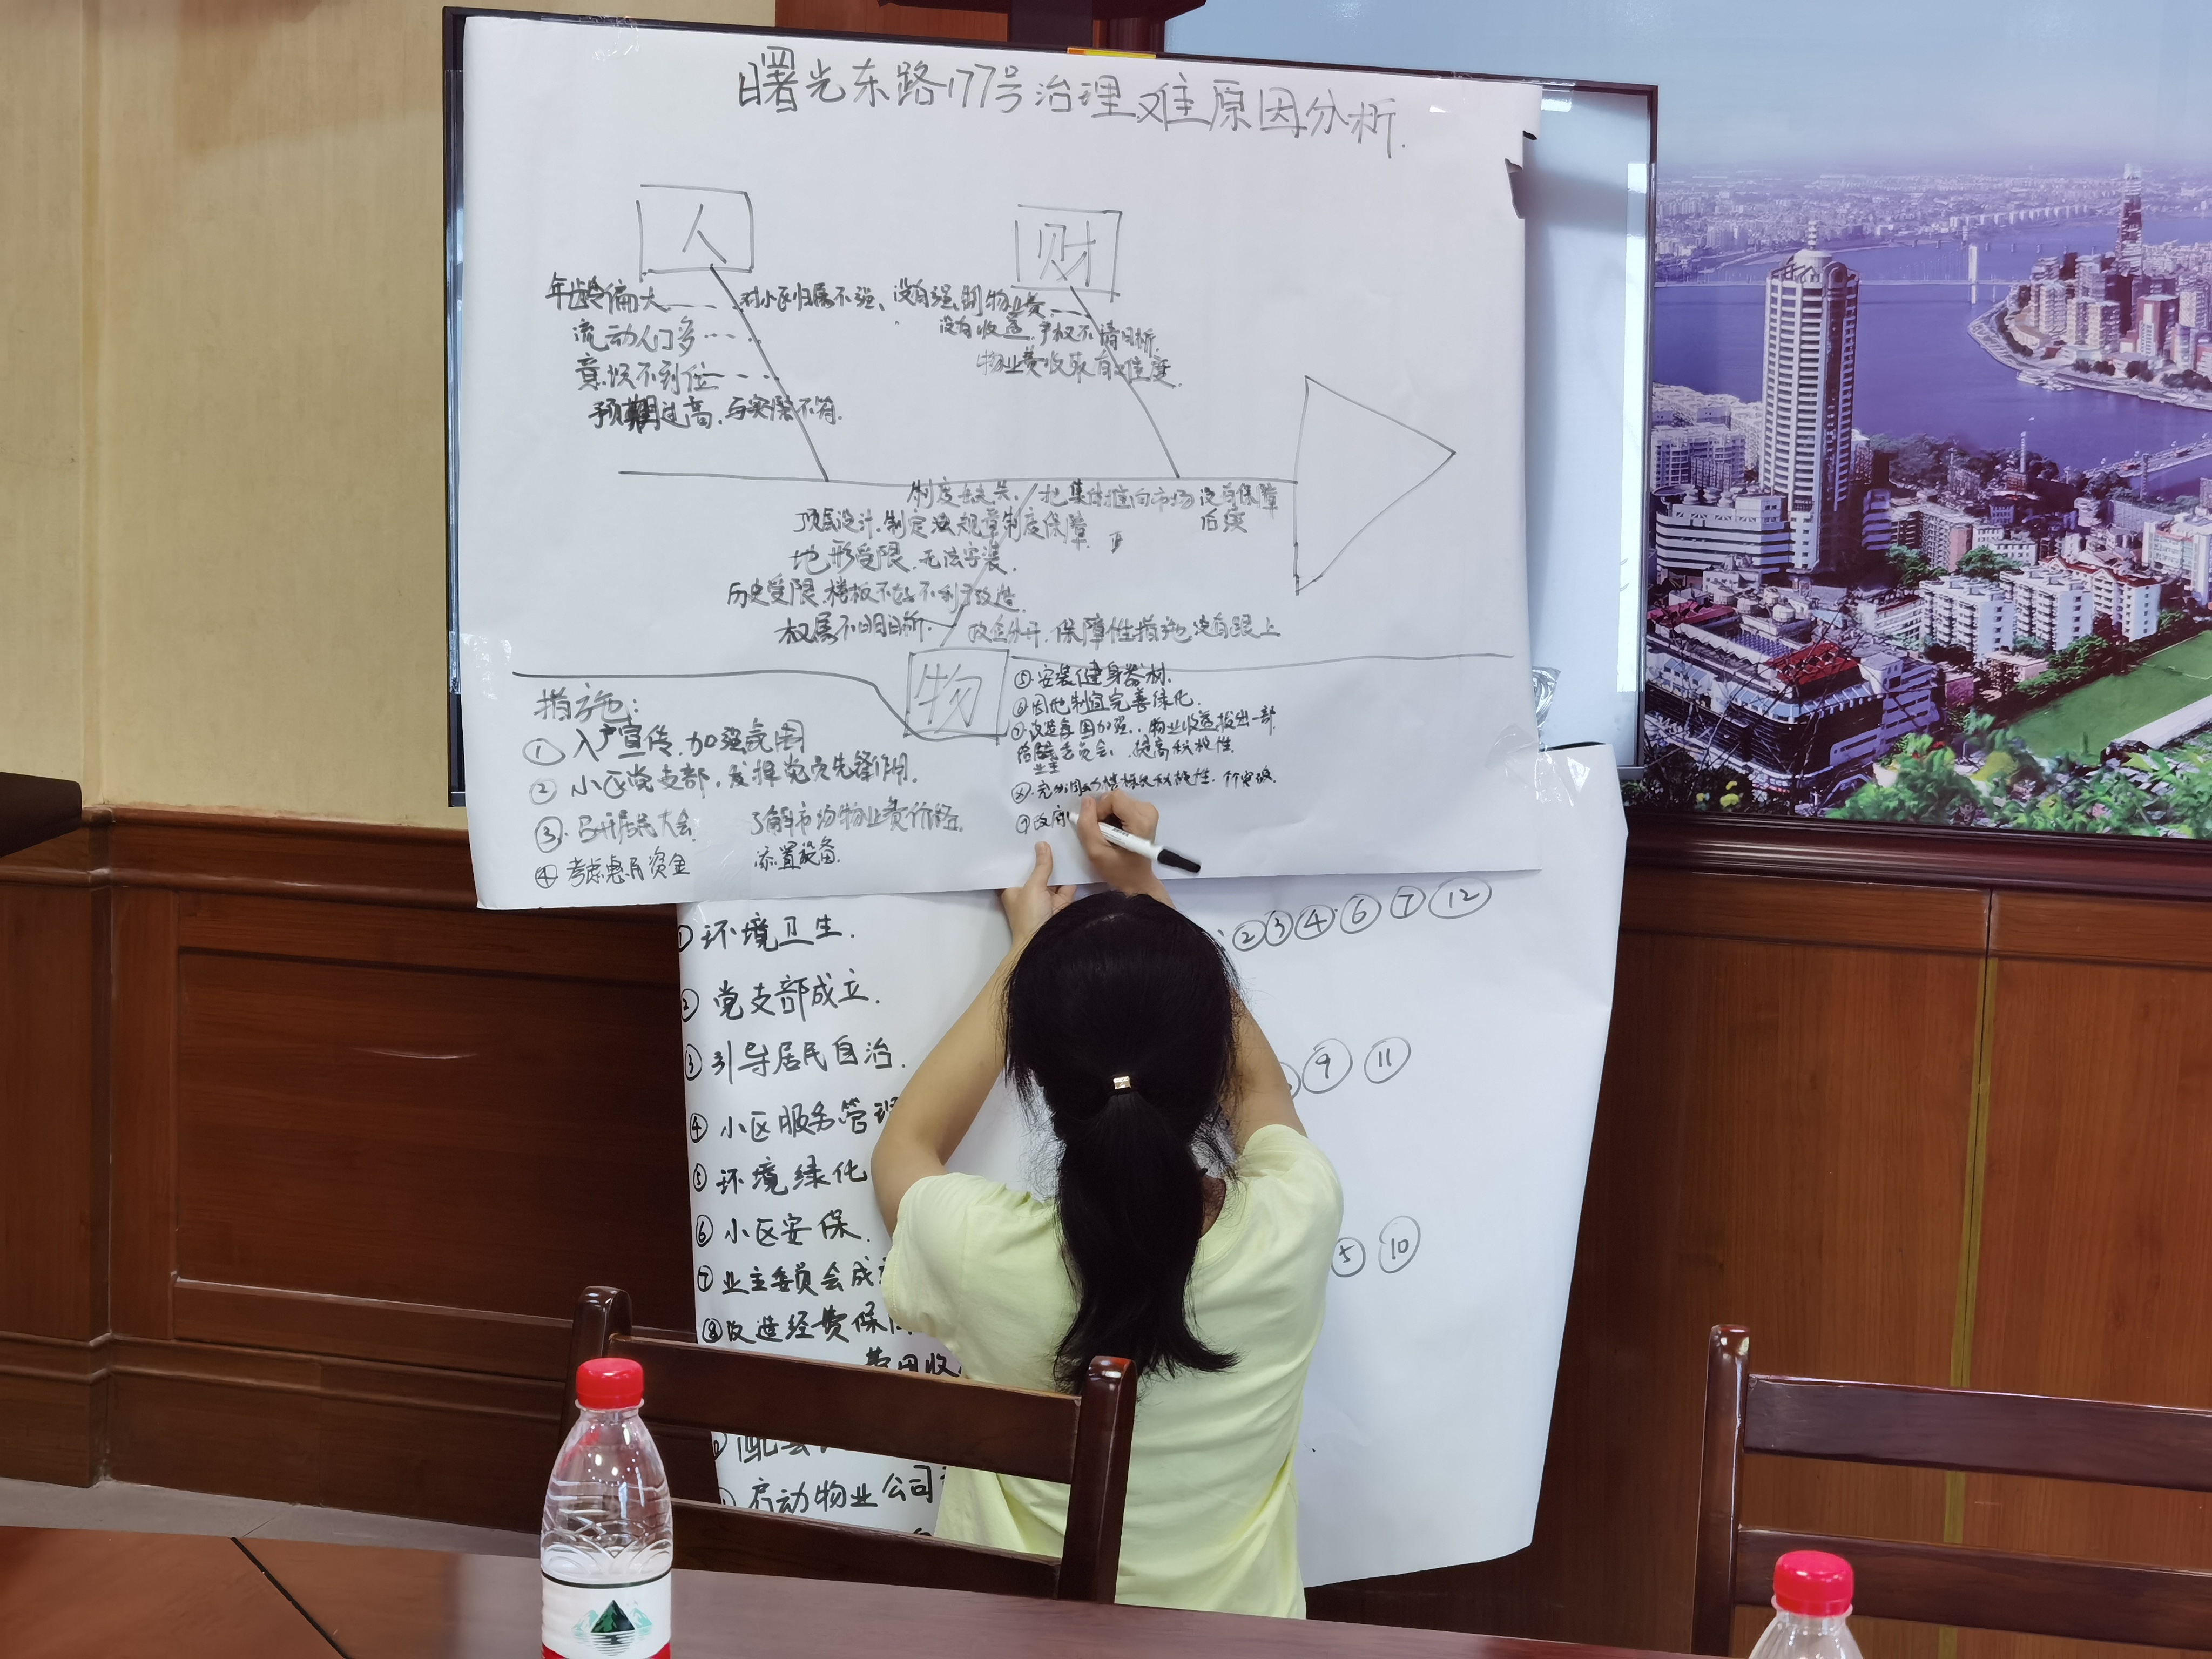 曙光东路177号治理难原因分析.
人
财
年龄偏大
对小区归属不强、没有强制物业费
流动人门多
没有收益,产权不清晰.
意识不到位
物业费收取有难度.
预期过高,与实际不符.
制度缺失. 把集体推向市场没有保障
后续
顶层设计.制定法规章制度保障.
地形受限,无法安装.
历史受限,楼板不好不利于改造.
权属不明晰.
政企分开,保障性措施没有跟上
物
措施:
① 入户宣传.加强氛围
② 小区党支部,发挥党员先锋作用.
③.召开居民大会 了解市场物业费价格.
④ 考虑惠民资金 添置设备.
⑤.安装健身器材.
⑥因地制宜完善绿化.
⑦改造氛围加强,物业收益拨出一部
委员会,提高积极性.
业主
⑧.充分调动楼栋长积极性.个突破.
⑨政府
① 环境卫生.
② 党支部成立.
③ 引导居民自治.
④ 小区服务管理
⑤ 环境绿化
⑥ 小区安保.
⑦ 业主委员会成
⑧改造经费保
费用收
启动物业公司
②③④⑥⑦⑫
⑨⑪
⑤⑩